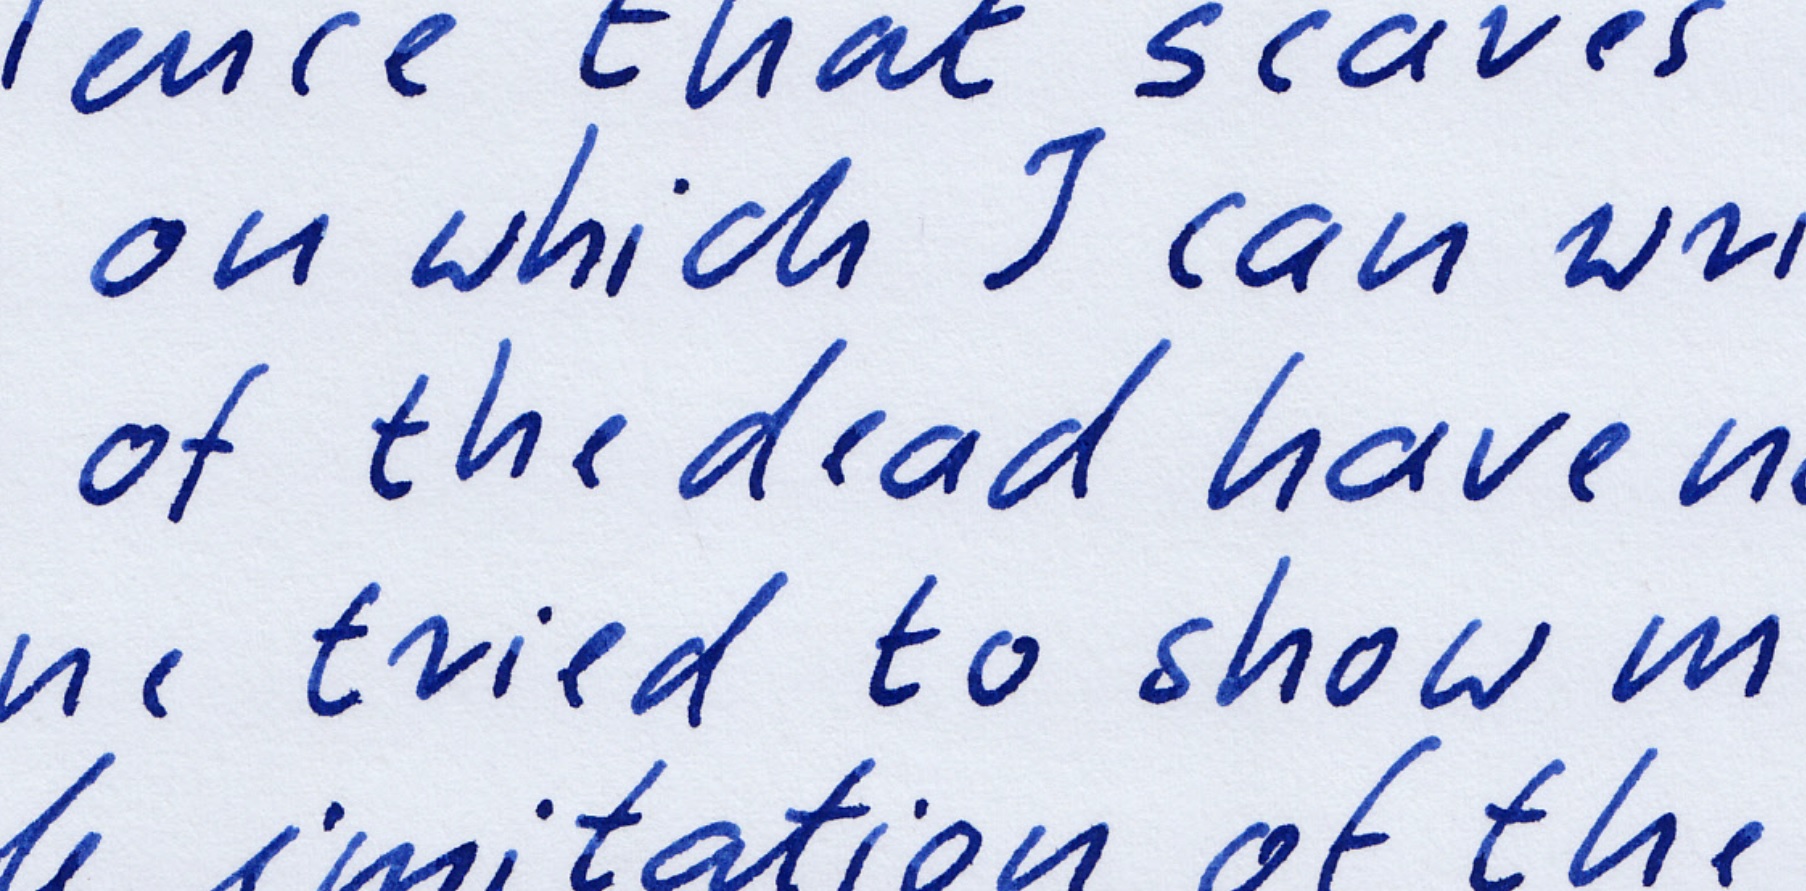 ence that scares
on which I can wri
of the dead have no
ne tried to show m
le imitation of the